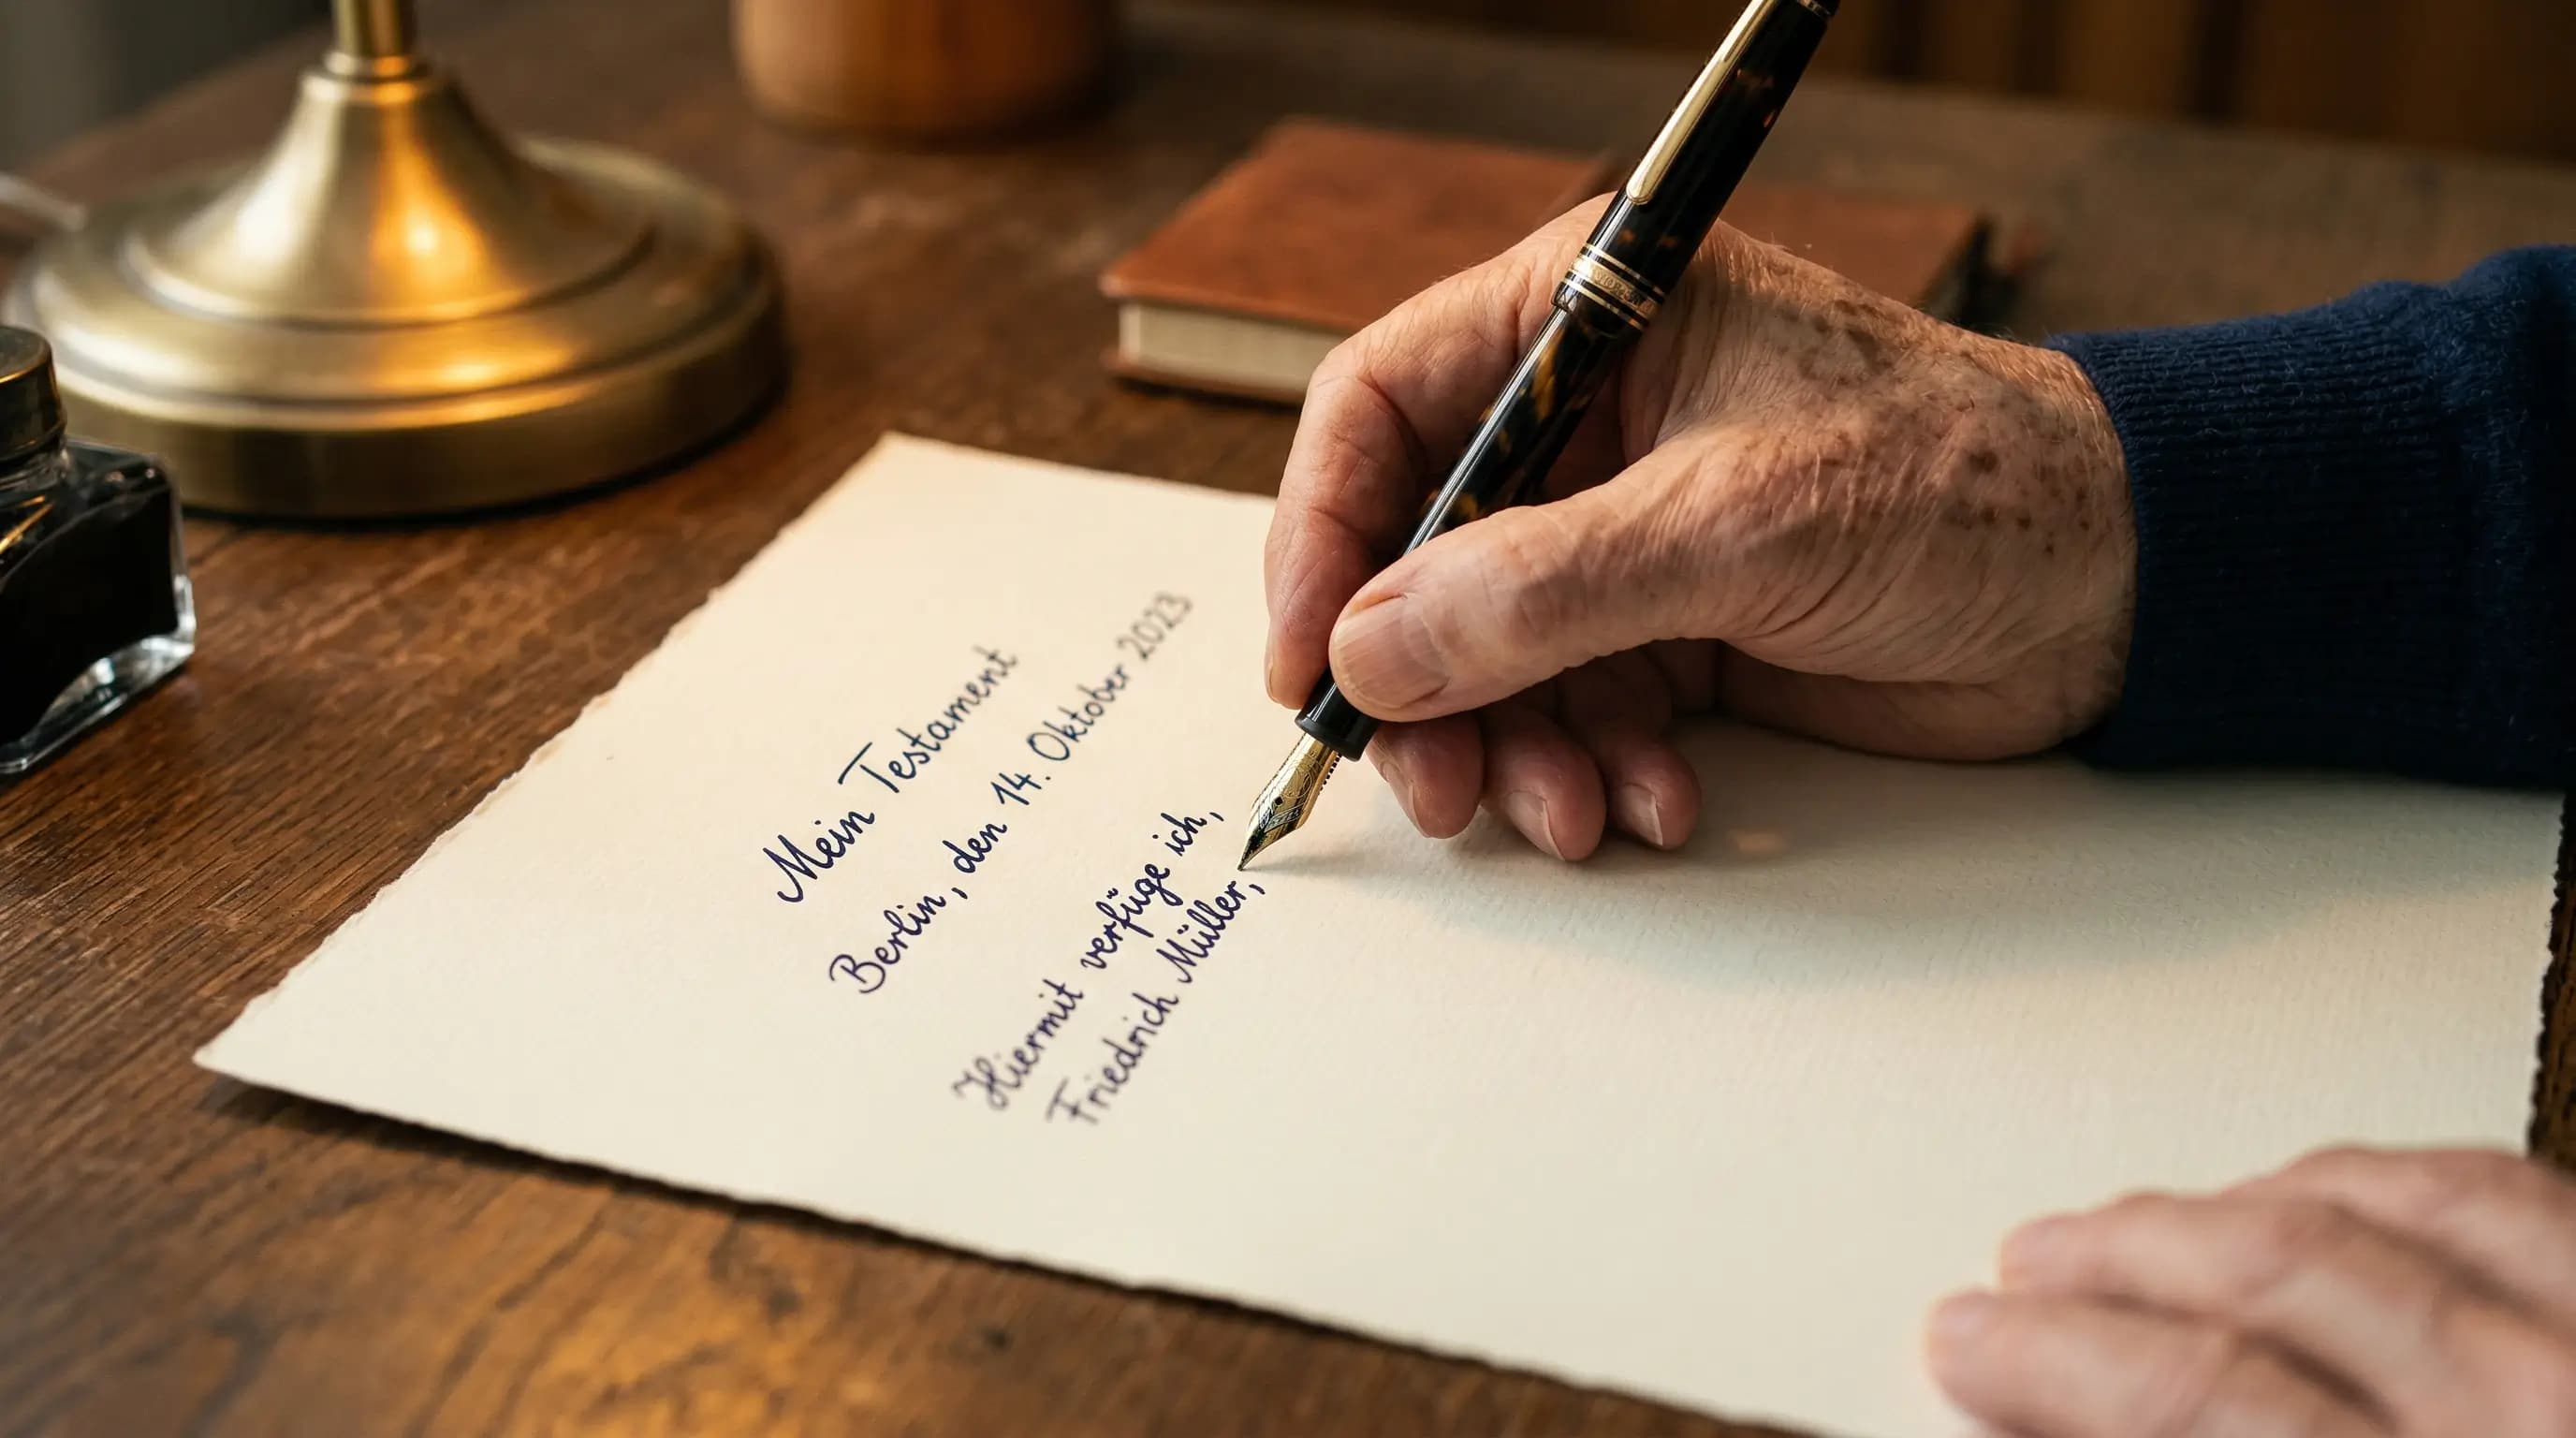 Mein Testament
Berlin, den 14. Oktober 2023
Hiermit verfüge ich,
Friedrich Müller,